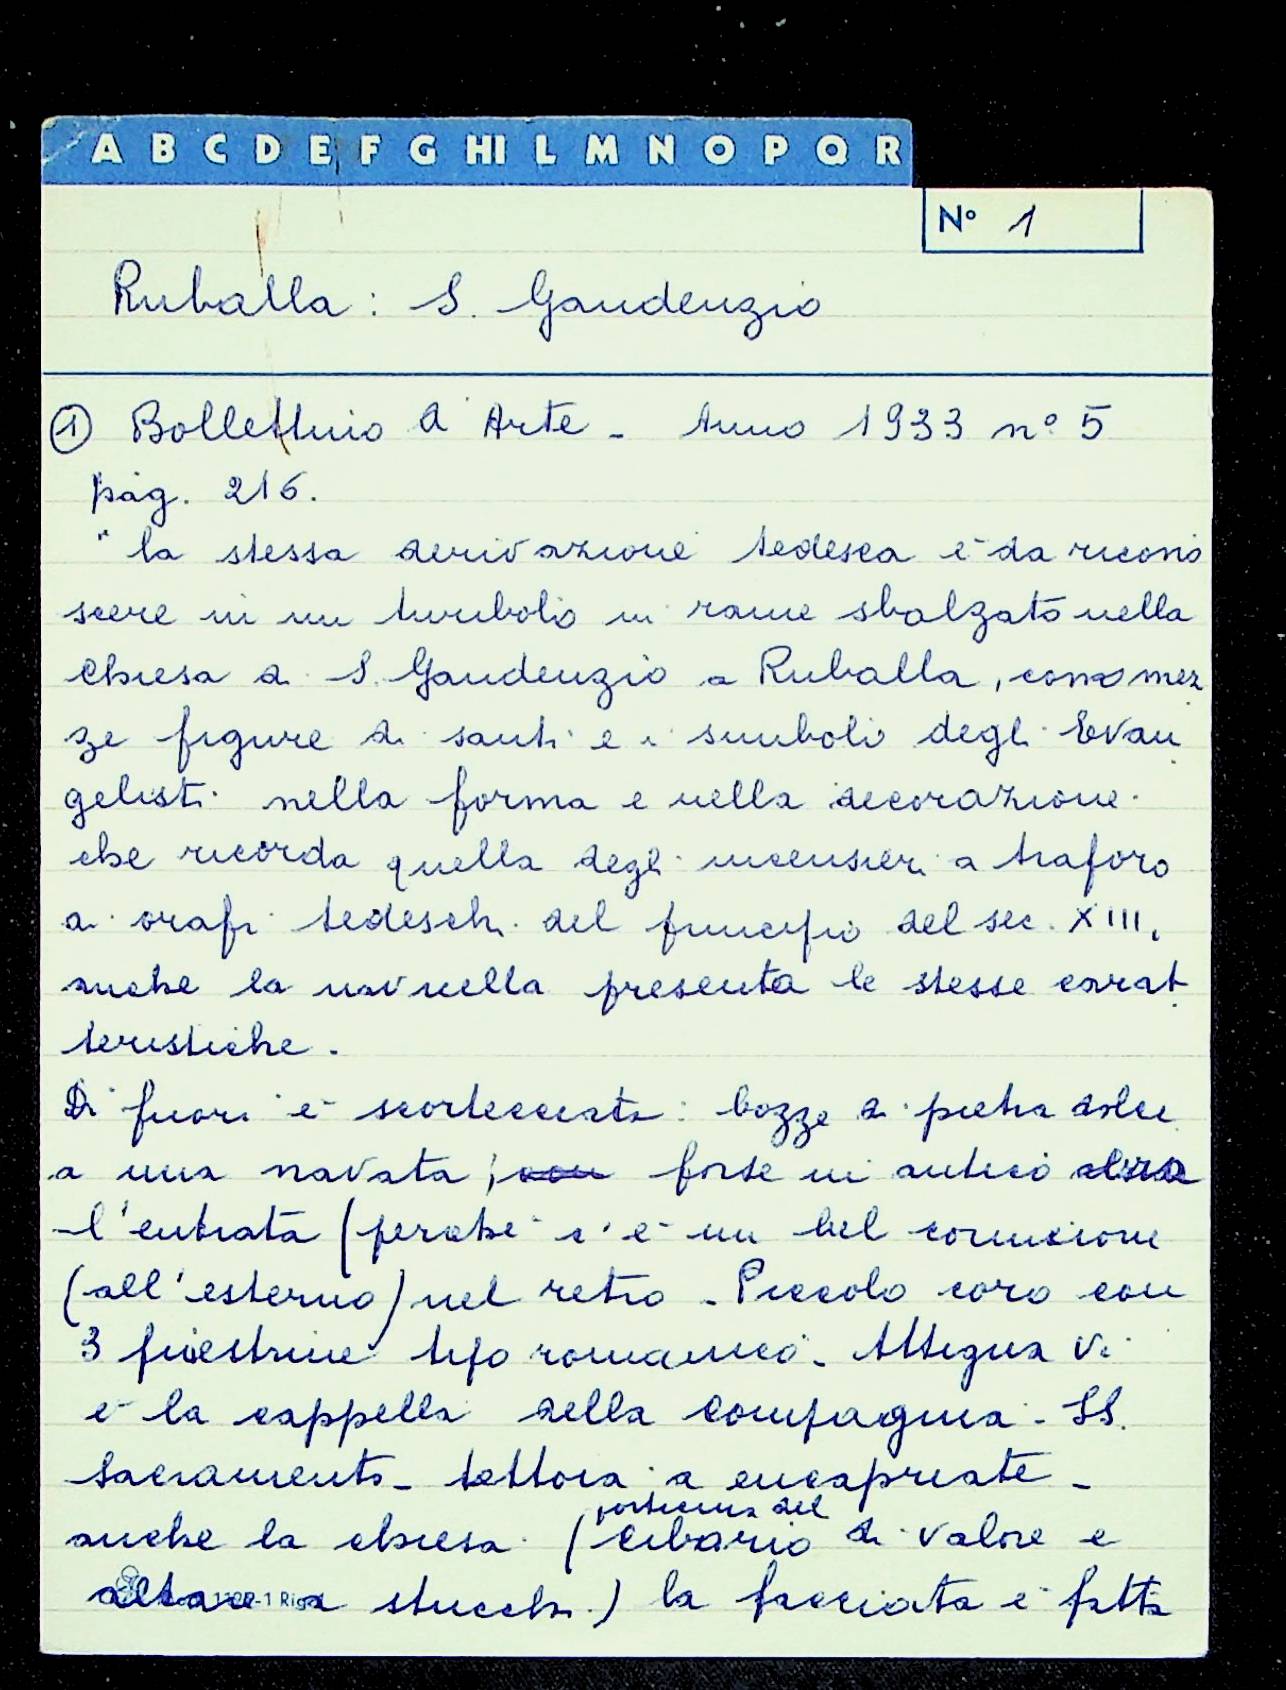 A B C D E F G HI L M N O P Q R
N° 1
Ruballa : S. Gaudenzio
① Bollettino d'Arte - Anno 1933 n° 5
pag. 216.
"la stessa derivazione tedesca è da ricono
scere in un turibolo in rame sbalzato nella
chiesa di S. Gaudenzio a Ruballa, con mez
ze figure di santi e i simboli degli Evan
gelisti nella forma e nella decorazione
che ricorda quella degli incensieri a traforo
di orafi tedeschi del principio del sec. XIII,
anche la navicella presenta le stesse carat
teristiche.
Di fuori è scortecciata : bozze di pietra dolce
a una navata, forse in antico
l'entrata (perchè c'è un bel cornicione
(all'esterno) nel retro - Piccolo coro con
3 finestrine tipo romanico. Attigua vi
è la cappella della Compagnia - SS.
Sacramento - tettoia a incapriate -
anche la chiesa. (porticina del
ciborio di valore e
altare a stucchi.) la facciata è fatta